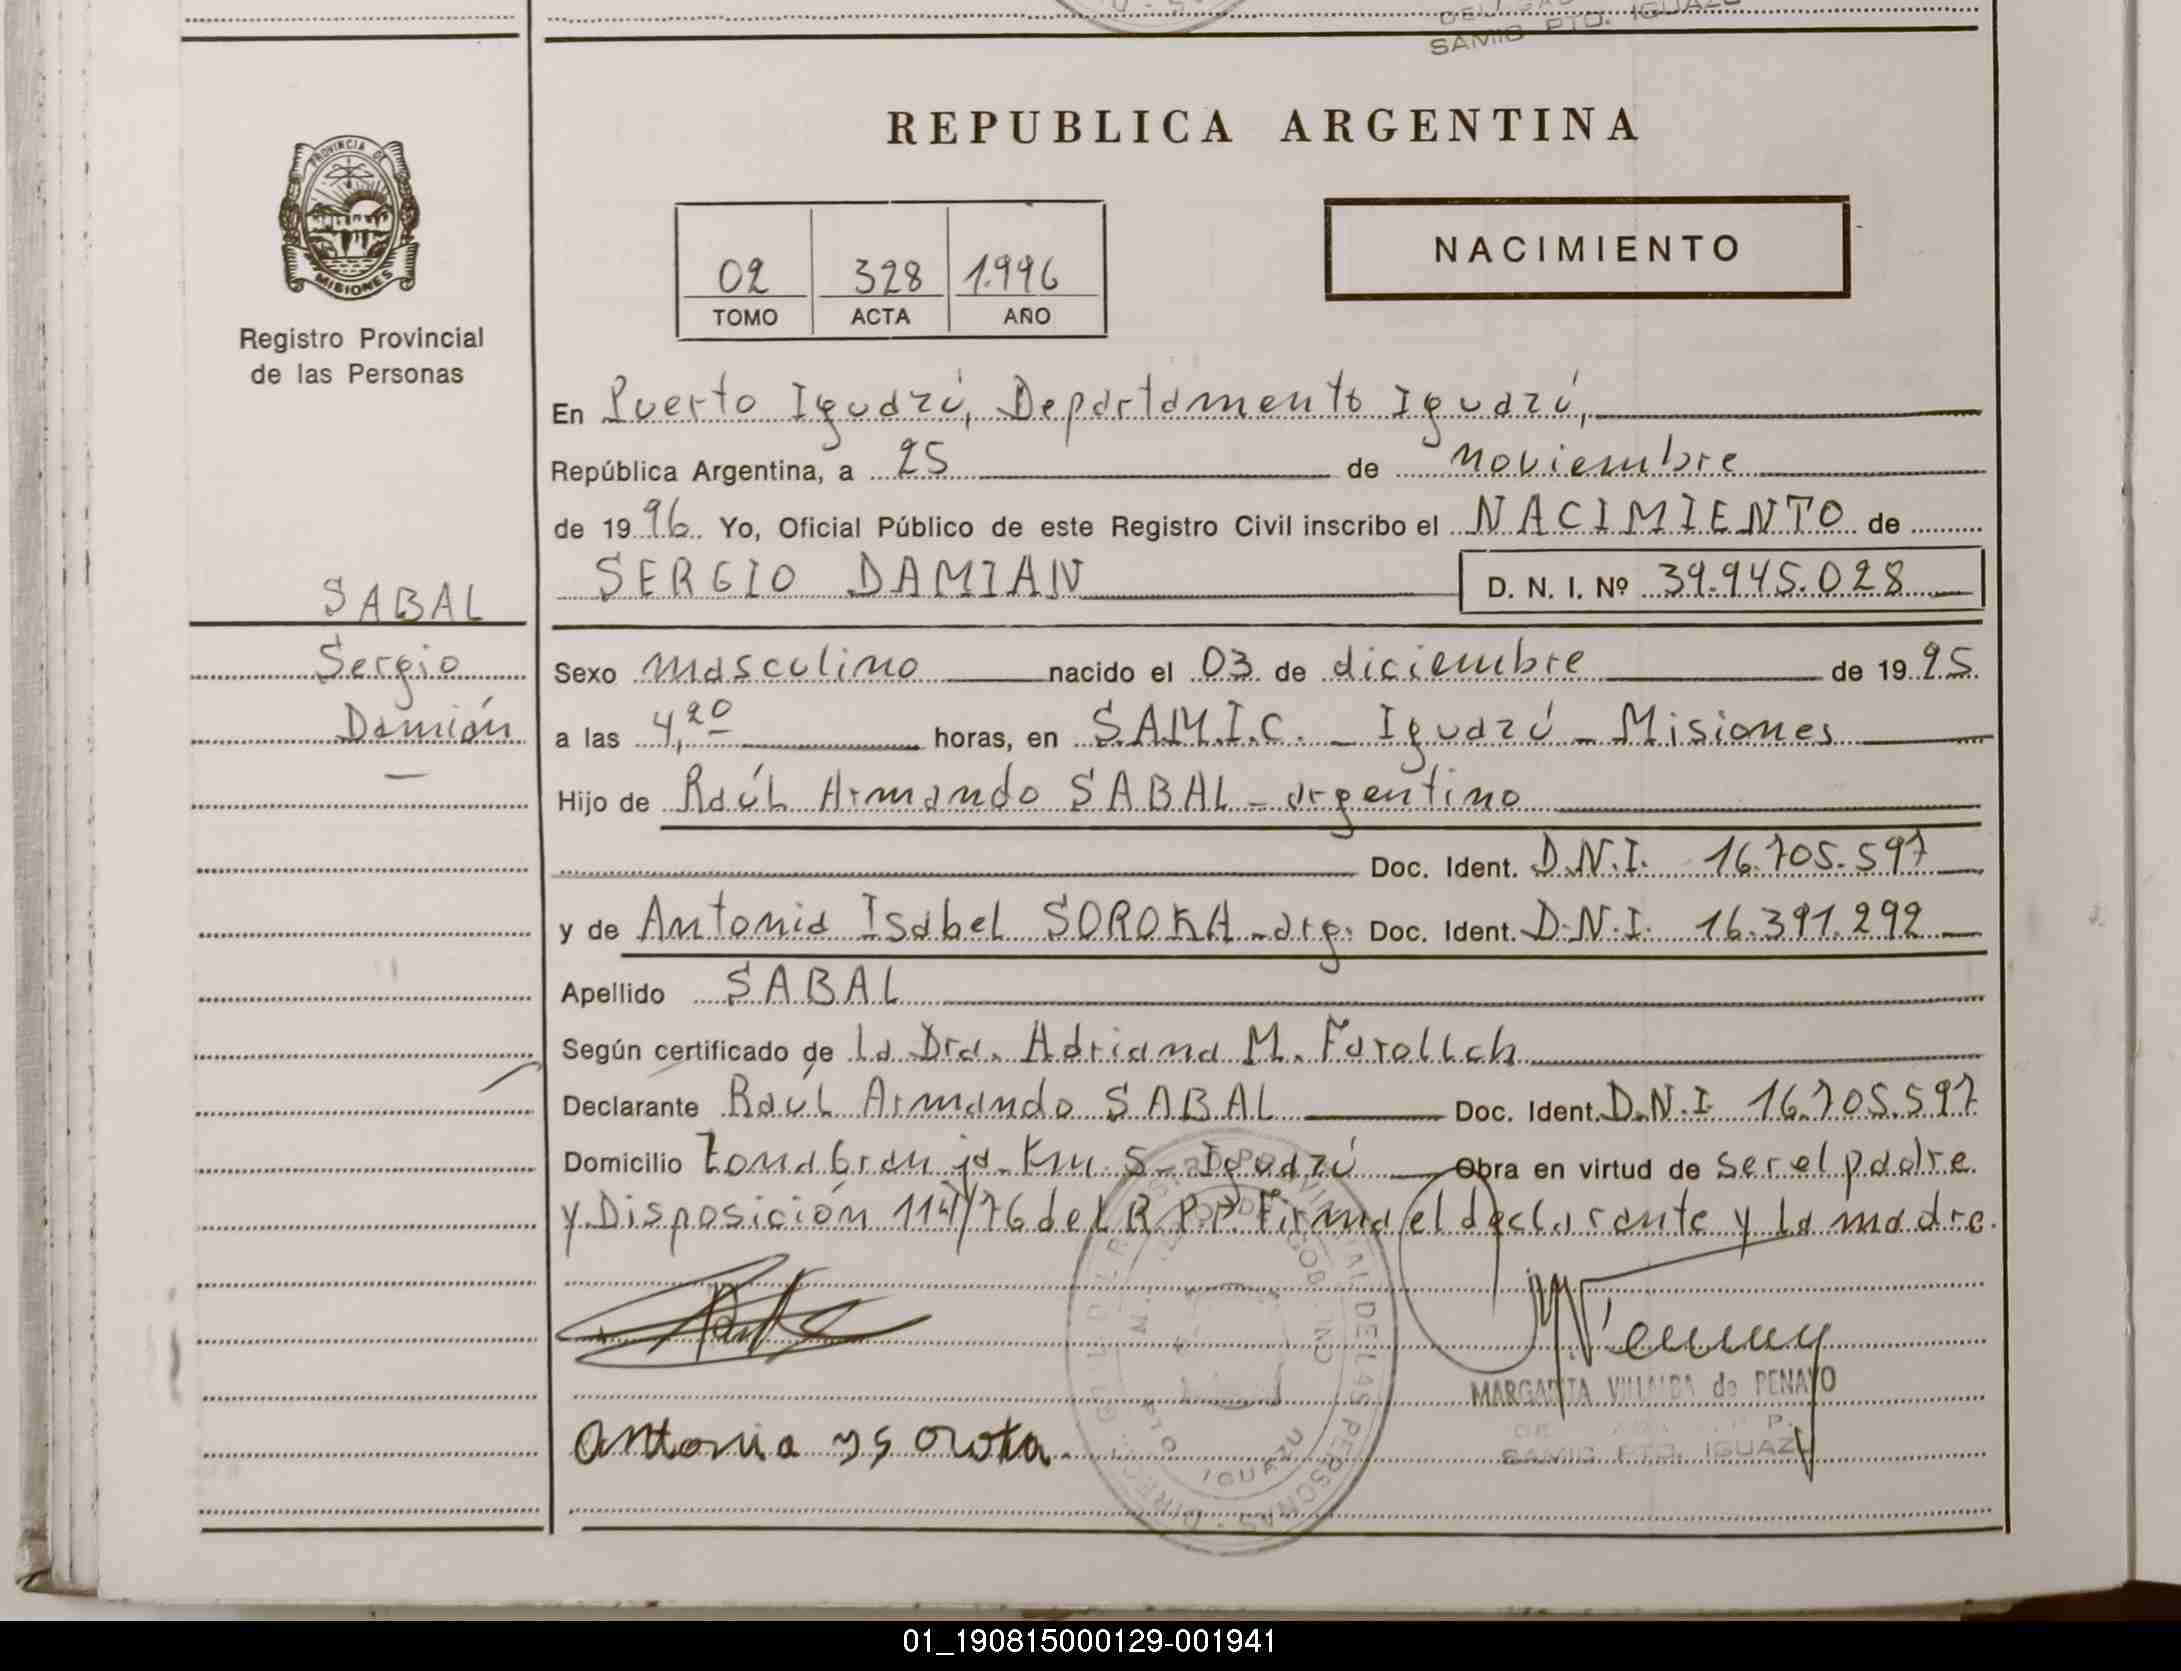 SAMIC PTO. IGUAZU
PROVINCIA DE
MISIONES
Registro Provincial
de las Personas
REPUBLICA ARGENTINA
NACIMIENTO
02 328 1.996
TOMO ACTA AÑO
En Puerto Iguazú, Departamento Iguazú,
República Argentina, a 25 de noviembre
de 19 96. Yo, Oficial Público de este Registro Civil inscribo el NACIMIENTO de
SERGIO DAMIAN D. N. I. Nº 39.945.028
SABAL
Sergio
Damián
Sexo masculino nacido el 03 de diciembre de 19 95.
a las 4,20 horas, en S.A.M.I.C. - Iguazú - Misiones
Hijo de Raúl Armando SABAL - argentino
Doc. Ident. D.N.I. 16.705.597
y de Antonia Isabel SOROKA - arg. Doc. Ident. D.N.I. 16.391.292
Apellido SABAL
Según certificado de la Dra. Adriana M. Farollch
Declarante Raúl Armando SABAL Doc. Ident. D.N.I 16.705.597
Domicilio Zona Granja - Km. 5 - Iguazú Obra en virtud de ser el padre
y Disposición 114/76 del R.P.P. Firma el declarante y la madre.
MARGARITA VILLALBA de PENAYO
SAMIC PTO. IGUAZU
Antonia
01_190815000129-001941